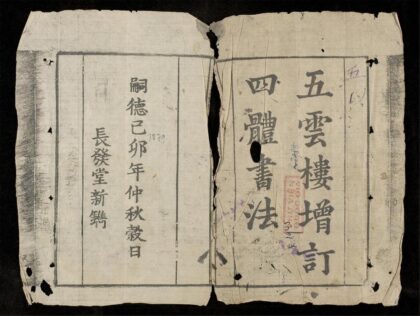 五雲樓增訂
四體書法
嗣德己卯年仲秋穀日
長發堂新鐫